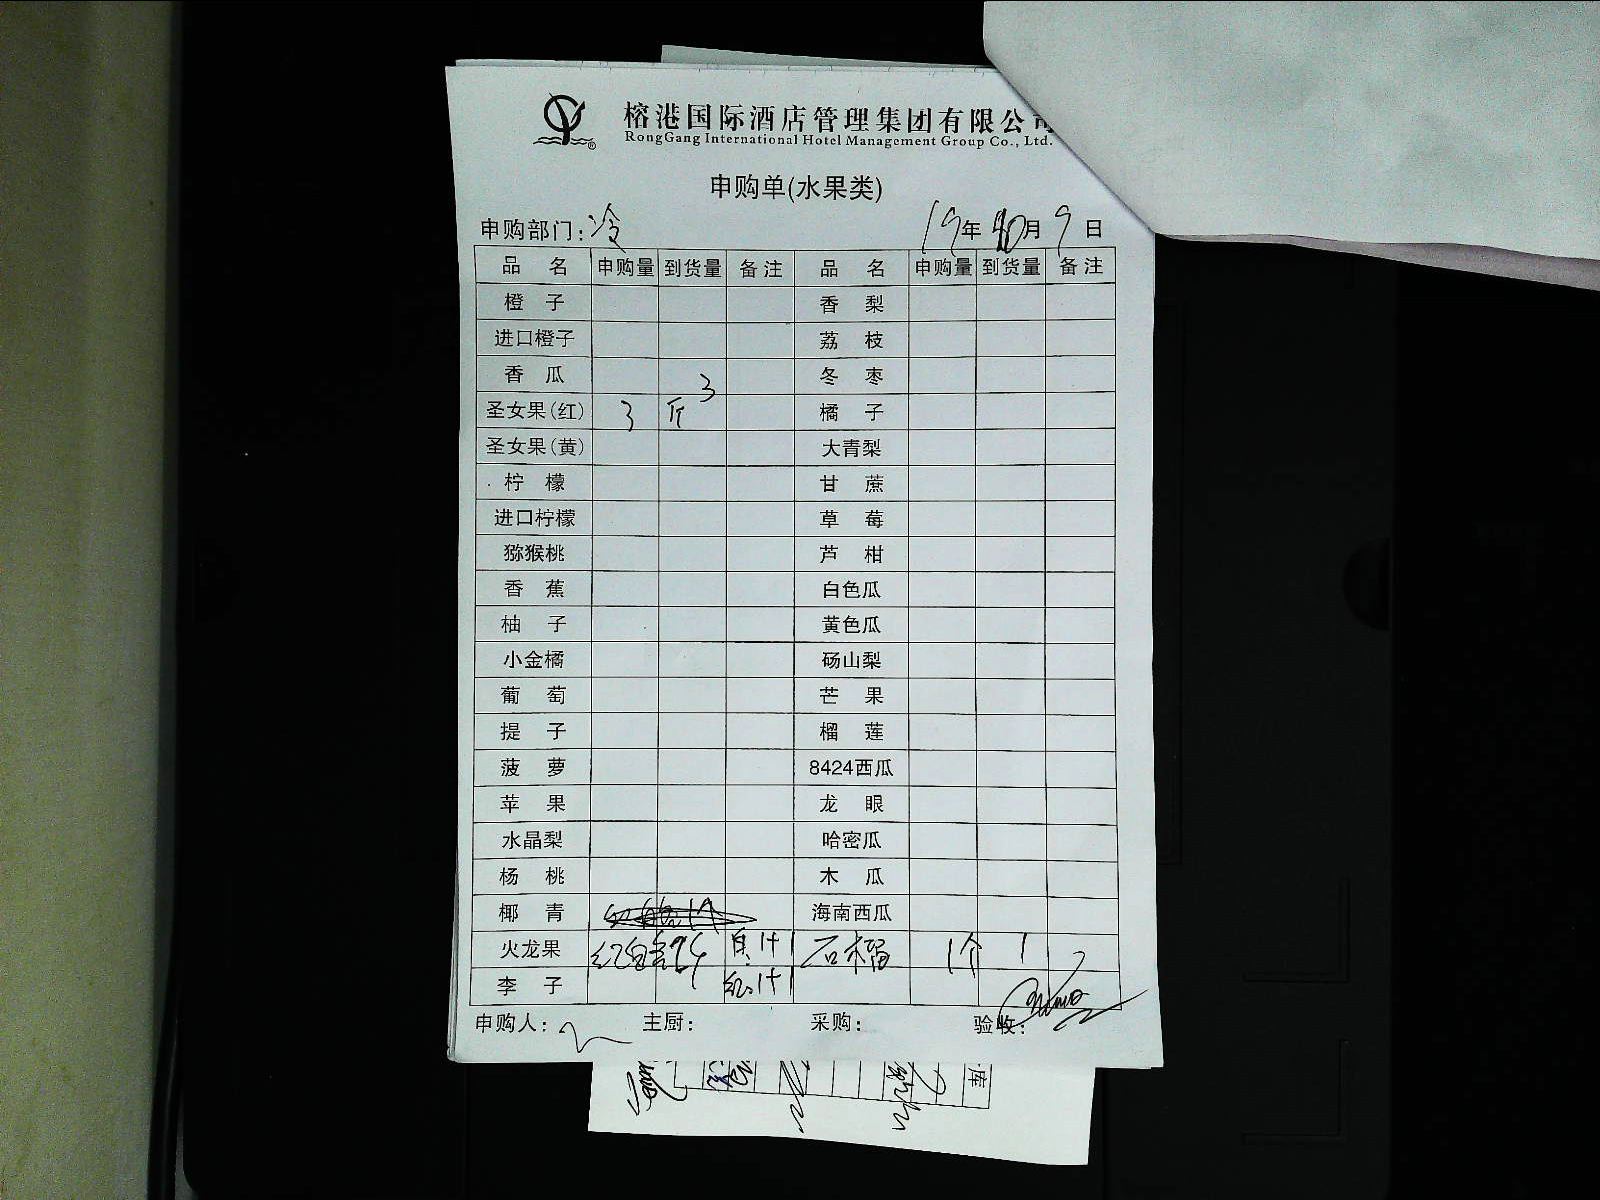 榕港国际酒店管理集团有限公司
RongGang International Hotel Management Group Co., Ltd.
申购单(水果类)
申购部门:冷 19年10月9日
品 名 申购量 到货量 备注 品 名 申购量 到货量 备注
橙 子 香 梨
进口橙子 荔 枝
香 瓜 冬 枣
圣女果(红) 3 斤 3 橘 子
圣女果(黄) 大青梨
柠 檬 甘 蔗
进口柠檬 草 莓
猕猴桃 芦 柑
香 蕉 白色瓜
柚 子 黄色瓜
小金橘 砀山梨
葡 萄 芒 果
提 子 榴 莲
菠 萝 8424西瓜
苹 果 龙 眼
水晶梨 哈密瓜
杨 桃 木 瓜
椰 青 海南西瓜
火龙果 红白各 石榴 1个 1
李 子
申购人: 主厨: 采购: 验收:
库